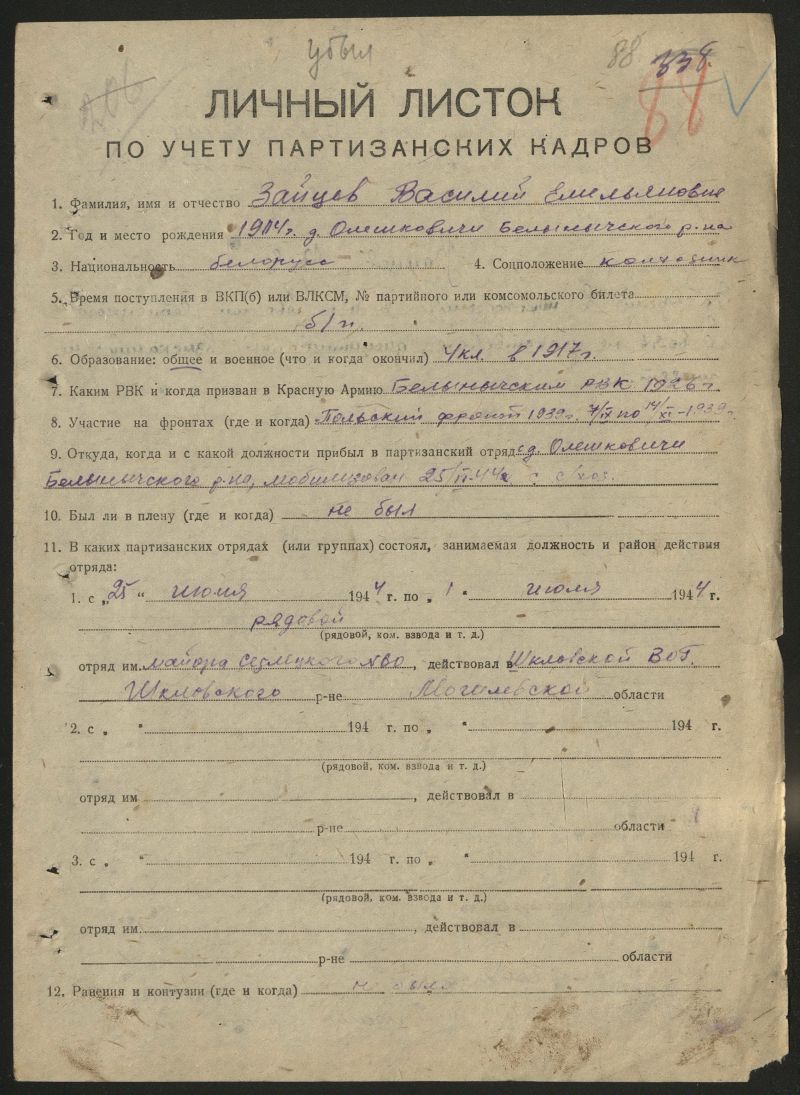 убыл 88 338.
206 88
ЛИЧНЫЙ ЛИСТОК
ПО УЧЕТУ ПАРТИЗАНСКИХ КАДРОВ
1. Фамилия, имя и отчество Зайцев Василий Емельянович
2. Год и место рождения 1904г. д. Олешковичи Белыничского р-на
3. Национальность белорусс 4. Соцположение колхозник
5. Время поступления в ВКП(б) или ВЛКСМ, № партийного или комсомольского билета
б/п.
6. Образование: общее и военное (что и когда окончил) 4кл. в 1917г.
7. Каким РВК и когда призван в Красную Армию Белыничским РВК 1926 г
8. Участие на фронтах (где и когда) Польский фронт 1939г. 7/IX по 14/XI-1939г.
9. Откуда, когда и с какой должности прибыл в партизанский отряд: д. Олешковичи
Белыничского р-на, мобилизован 25/VI-44г
10. Был ли в плену (где и когда) не был
11. В каких партизанских отрядах (или группах) состоял, занимаемая должность и район действия
отряда:
1. с „25 “ июня 1944 г. по „ 1 “ июля 1944 г.
рядовой
(рядовой, ком. взвода и т. д.)
отряд им. майора , действовал в Шкловской ВОГ.
Шкловского р-не Могилевской области
2. с „ “ 194 г. по „ “ 194 г.
(рядовой, ком. взвода и т. д.)
отряд им , действовал в
р-не области
3. с „ “ 194 г. по „ “ 194 г.
(рядовой, ком. взвода и т. д.)
отряд им. , действовал в
р-не области
12. Ранения и контузии (где и когда) н был